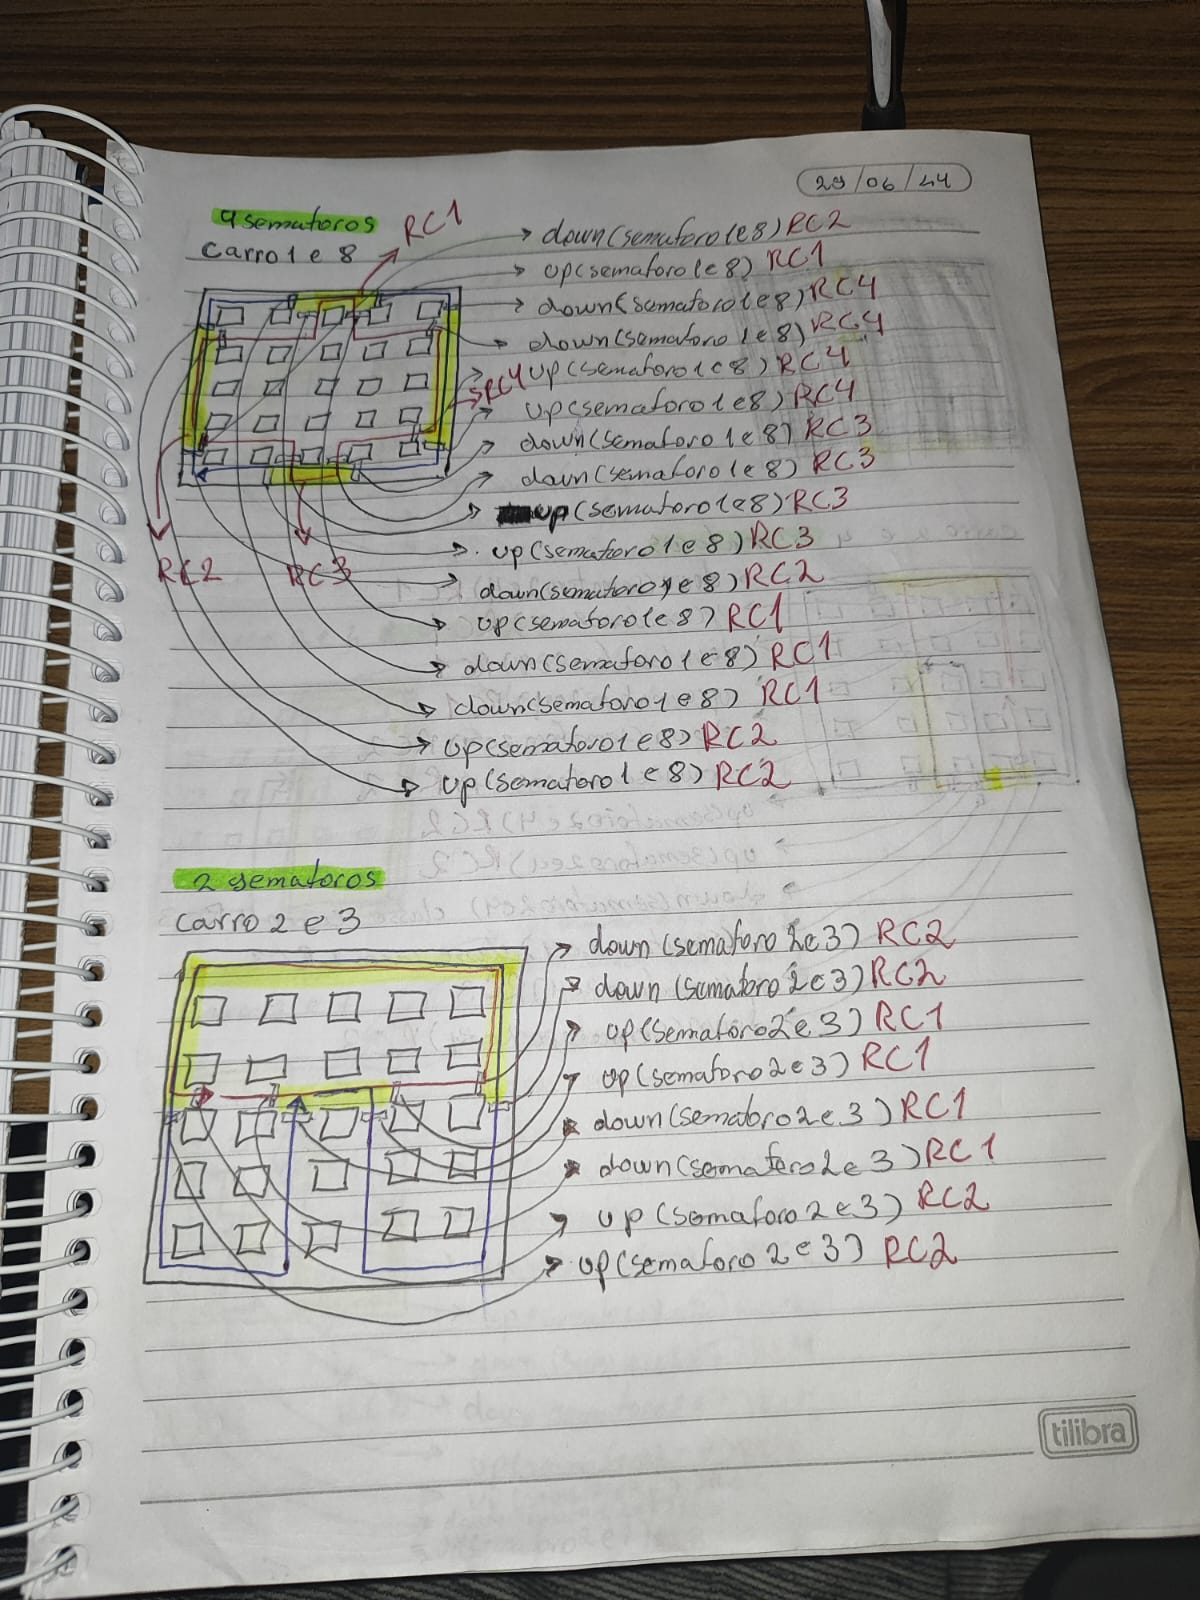 29/06/44
4 semaforos
RC1
Carro 1 e 8
down(semaforo 1e8) RC2
up(semaforo 1e8) RC1
down(semaforo 1e8) RC4
down(semaforo 1e8) RC4
up(semaforo 1e8) RC4
RC4
up(semaforo 1e8) RC4
down(semaforo 1e8) RC3
down(semaforo 1e8) RC3
up(semaforo 1e8) RC3
up(semaforo 1e8) RC3
RC2
RC3
down(semaforo 1e8) RC2
up(semaforo 1e8) RC1
down(semaforo 1e8) RC1
down(semaforo 1e8) RC1
up(semaforo 1e8) RC2
up(semaforo 1e8) RC2
2 semaforos
carro 2 e 3
down(semaforo 2e3) RC2
down(semaforo 2e3) RC2
up(semaforo 2e3) RC1
up(semaforo 2e3) RC1
down(semaforo 2e3) RC1
down(semaforo 2e3) RC1
up(semaforo 2e3) RC2
up(semaforo 2e3) RC2
tilibra